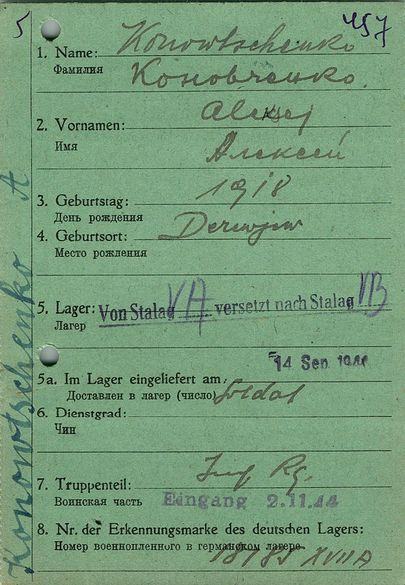 5
457
1. Name: Konowtschenko
Фамилия Коновченко.
2. Vornamen: Aleksej
Имя Алексей
3. Geburtstag: 1918
День рождения
4. Geburtsort:
Место рождения
5. Lager: Von Stalag VA versetzt nach Stalag VB
Лагерь
14 Sep. 1944
5a. Im Lager eingeliefert am:
Доставлен в лагерь (число) Soldat
6. Dienstgrad:
Чин
7. Truppenteil: Inf Rg.
Воинская часть Eingang 2.11.44
8. Nr. der Erkennungsmarke des deutschen Lagers:
Номер военнопленного в германском лагере XVII A
Konowtschenko A